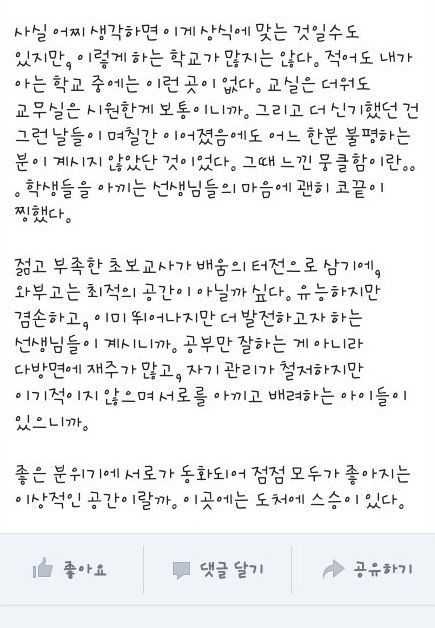 사실 어찌 생각하면 이게 상식에 맞는 것일수도
있지만, 이렇게 하는 학교가 많지는 않다. 적어도 내가
아는 학교 중에는 이런 곳이 없다. 교실은 더워도
교무실은 시원한게 보통이니까. 그리고 더 신기했던 건
그런 날들이 며칠간 이어졌음에도 어느 한분 불평하는
분이 계시지 않았단 것이었다. 그때 느낀 뭉클함이란..
. 학생들을 아끼는 선생님들의 마음에 괜히 코끝이
찡했다.
젊고 부족한 초보교사가 배움의 터전으로 삼기에,
와부고는 최적의 공간이 아닐까 싶다. 유능하지만
겸손하고, 이미 뛰어나지만 더 발전하고자 하는
선생님들이 계시니까. 공부만 잘하는 게 아니라
다방면에 재주가 많고, 자기 관리가 철저하지만
이기적이지 않으며 서로를 아끼고 배려하는 아이들이
있으니까.
좋은 분위기에 서로가 동화되어 점점 모두가 좋아지는
이상적인 공간이랄까. 이곳에는 도처에 스승이 있다.
좋아요 댓글 달기 공유하기